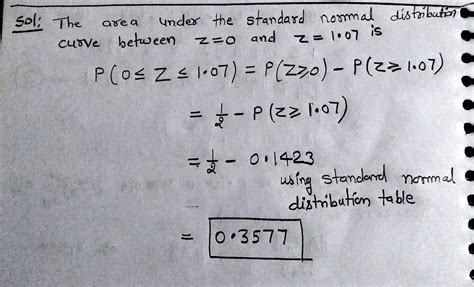 Sol: The area under the standard normal distribution
curve between z=0 and z = 1.07 is
P(0≤ Z ≤ 1.07) = P(Z≥0) - P(Z≥ 1.07)
= 1/2 - P(Z≥ 1.07)
= 1/2 - 0.1423
using standard normal
distribution table
= 0.3577